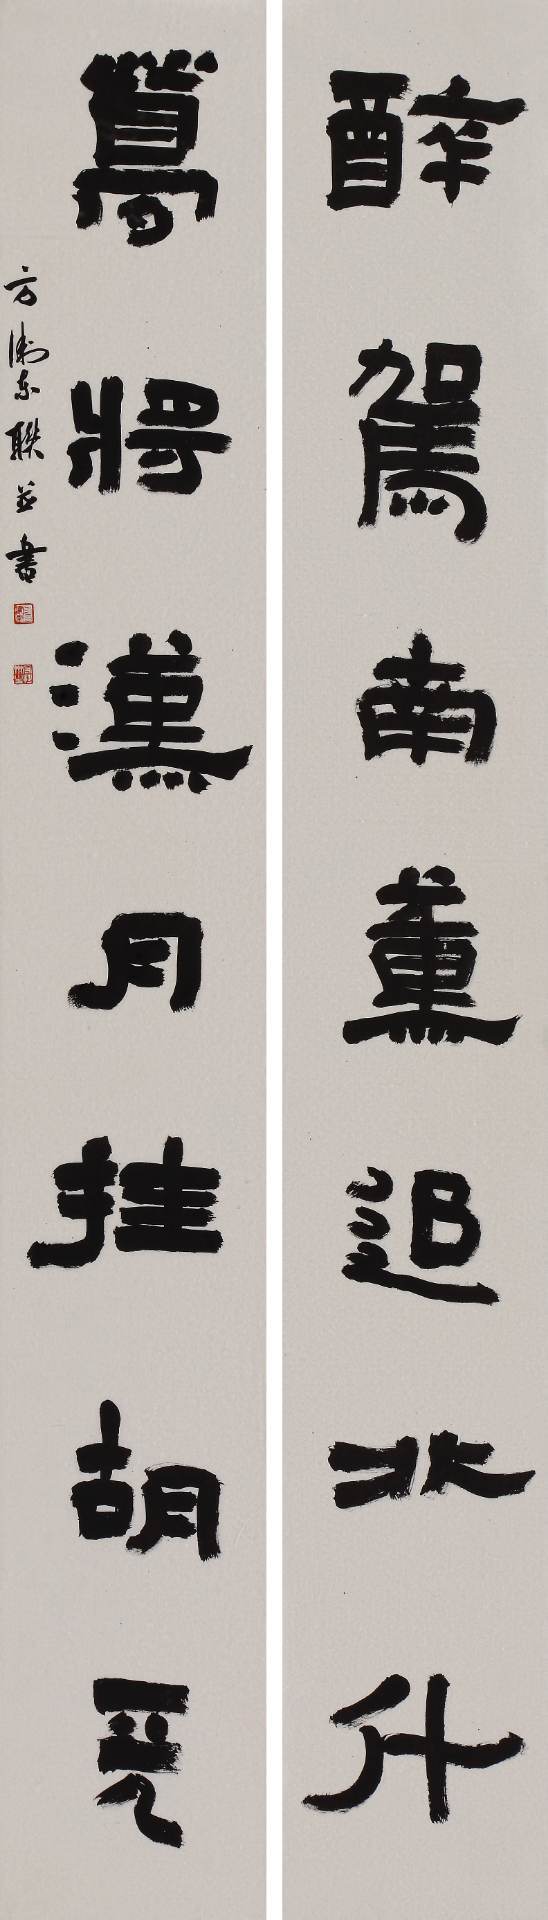 醉駕南薰追北斗
夢將漢月挂胡
方衛東聯並書